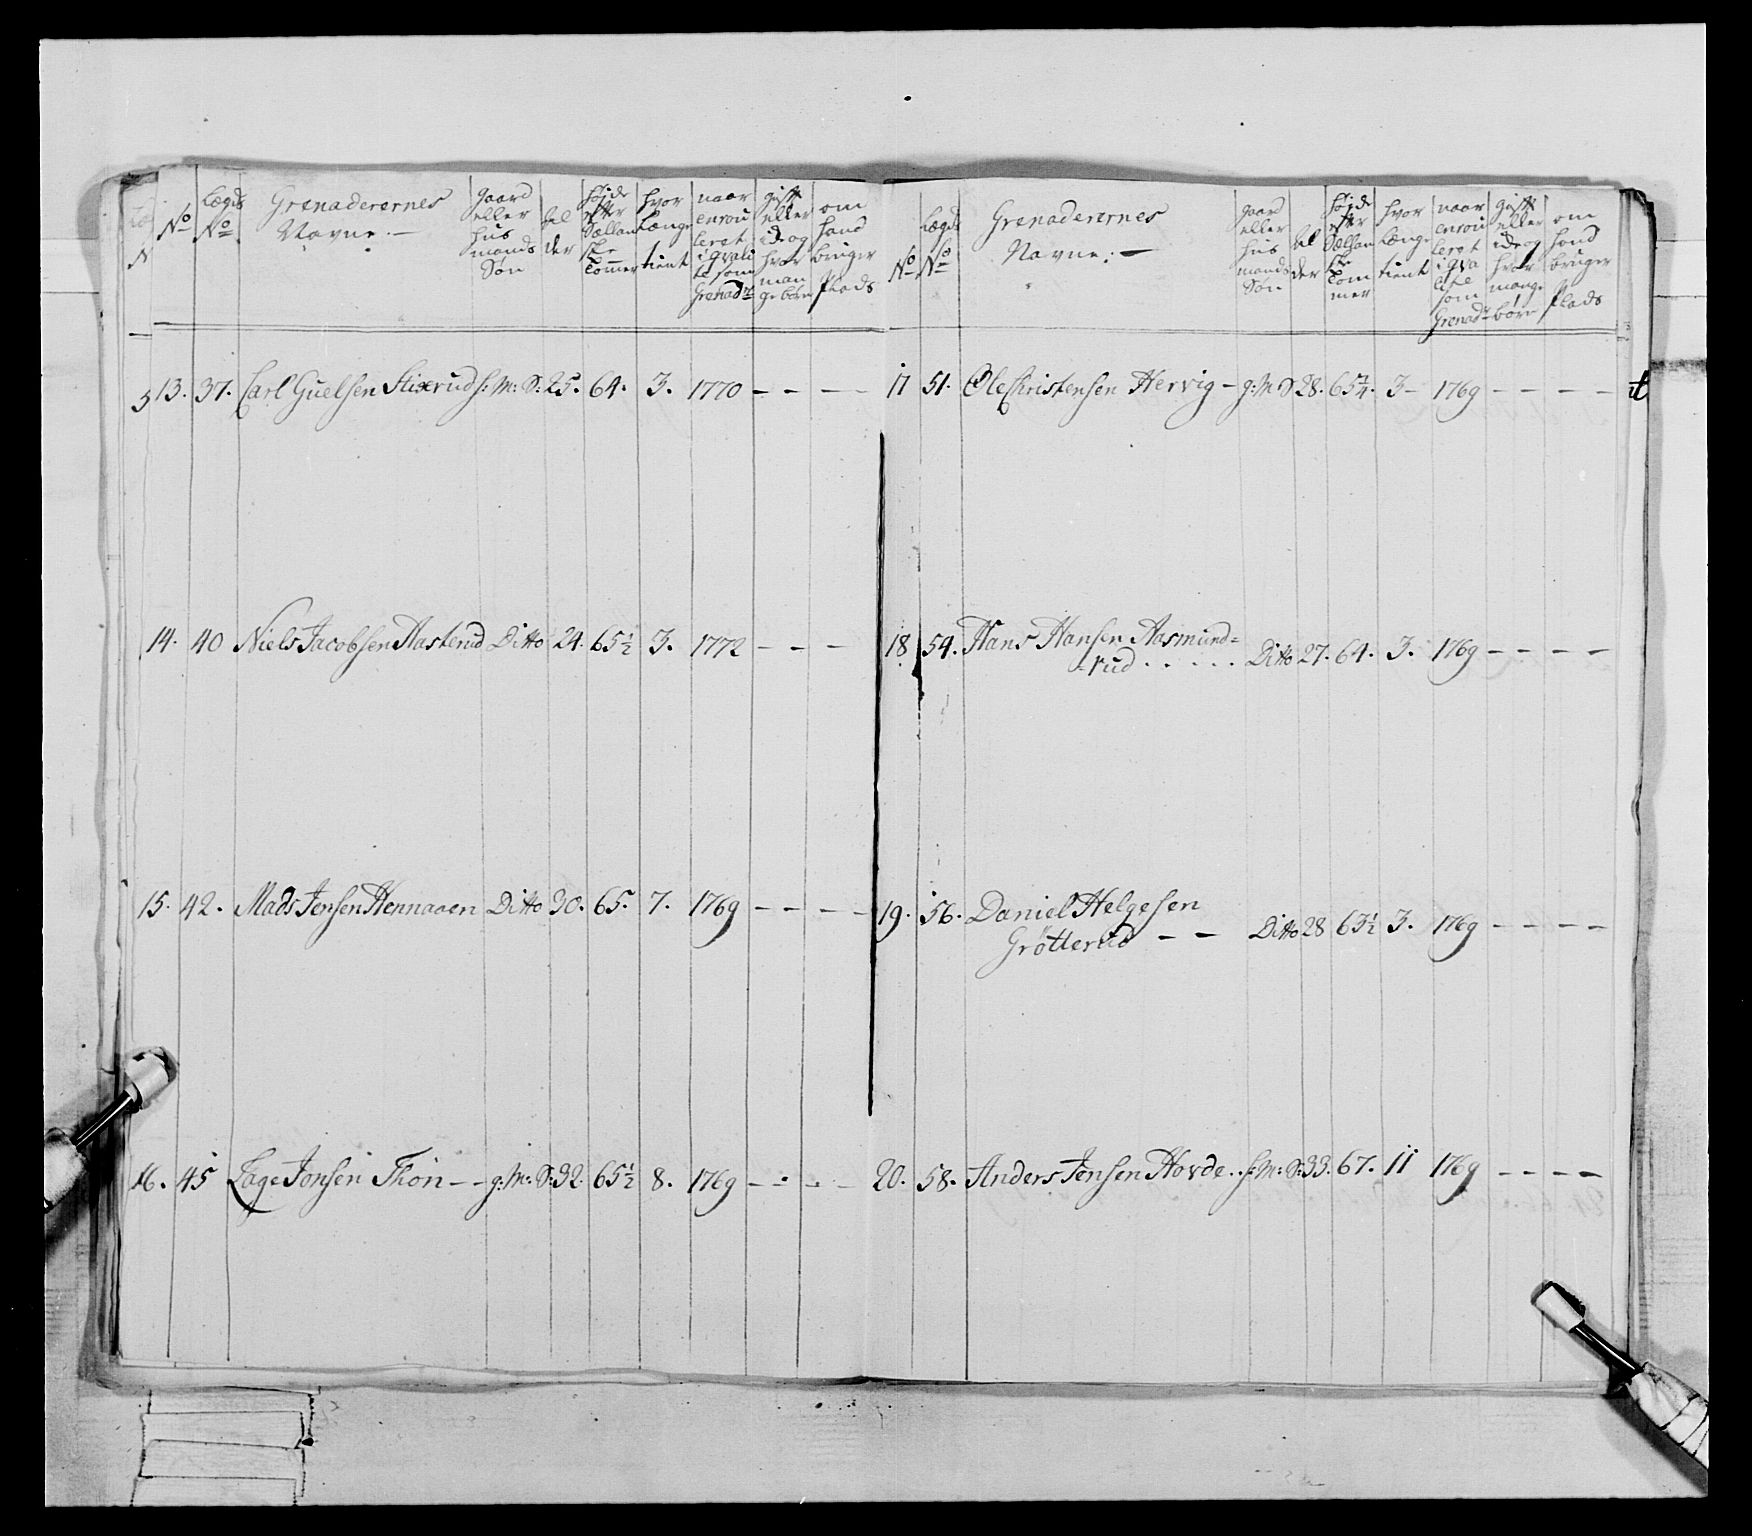 No
Lægds No
Grenaderernes Navne.
gaard eller huus mands Søn
al der
høide efter Sællandske Tommer
hvor længe tient
naar enrouleret i qvalite som Grenadr
gift eller ide og hvor mange børn
om hand bruger Plads
13. 37. Carl Guelsen Stixrud h: M: S: 25. 64. 3. 1770 – – –
14. 40 Niels Jacobsen Aasterud Ditto 24. 65½ 3. 1772 – – –
15. 42. Mads Jensen Hennaaen Ditto 30. 65. 7. 1769 – – – –
16. 45 Lage Jonsen Thon – – g: M: S: 32. 65½ 8. 1769 – – – –
No
Lægds No
Grenaderernes Navne. –
gaard eller huus mands Søn
al der
høide efter Sællandske Tommer
hvor længe tient
naar enrouleret i qvalite som Grenadr
gift eller ide og hvor mange børn
om hand bruger Plads
17 51. Ole Christensen Hervig – g: M S 28. 65¼. 3 – 1769 – – – –
18 54. Hans Hansen Aasmund=
=rud . . . . . Ditto 27. 64. 3. 1769 – – – –
19. 56. Daniel Helgesen
Grötterud – – Ditto 28 63½ 3. 1769 – – – –
20. 58. Anders Jensen Hovde. . h: M: S: 33. 67. 11 1769 – – – –